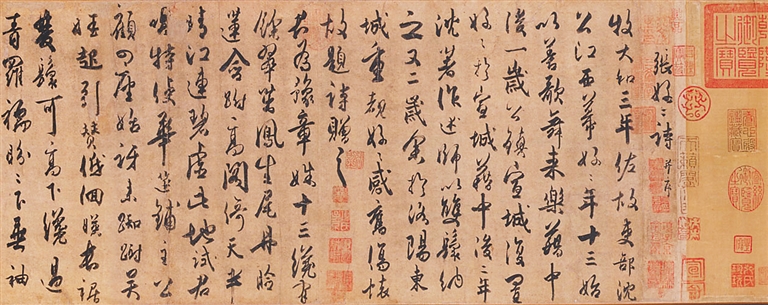 張好〻詩 并序
牧大和三年佐故吏部沈
公江西幕好〻年十三始
以善歌舞來樂籍中
後一歲公鎮宣城復置
好〻於宣城籍中後二年
沈著作述師以雙鬟納
之又二歲余於洛陽東
城重覩好〻感舊傷懷
故題詩贈之
君為豫章姝十三纔有
餘翠茁鳳生尾丹臉
蓮含跗高閣倚天半
晴江連碧虛此地試君
唱特使華筵鋪主公
顧四座始訝來踟躕吳
娃起引贊低佪映長裾
雙鬟可高下纔過
青羅襦盼〻下垂袖